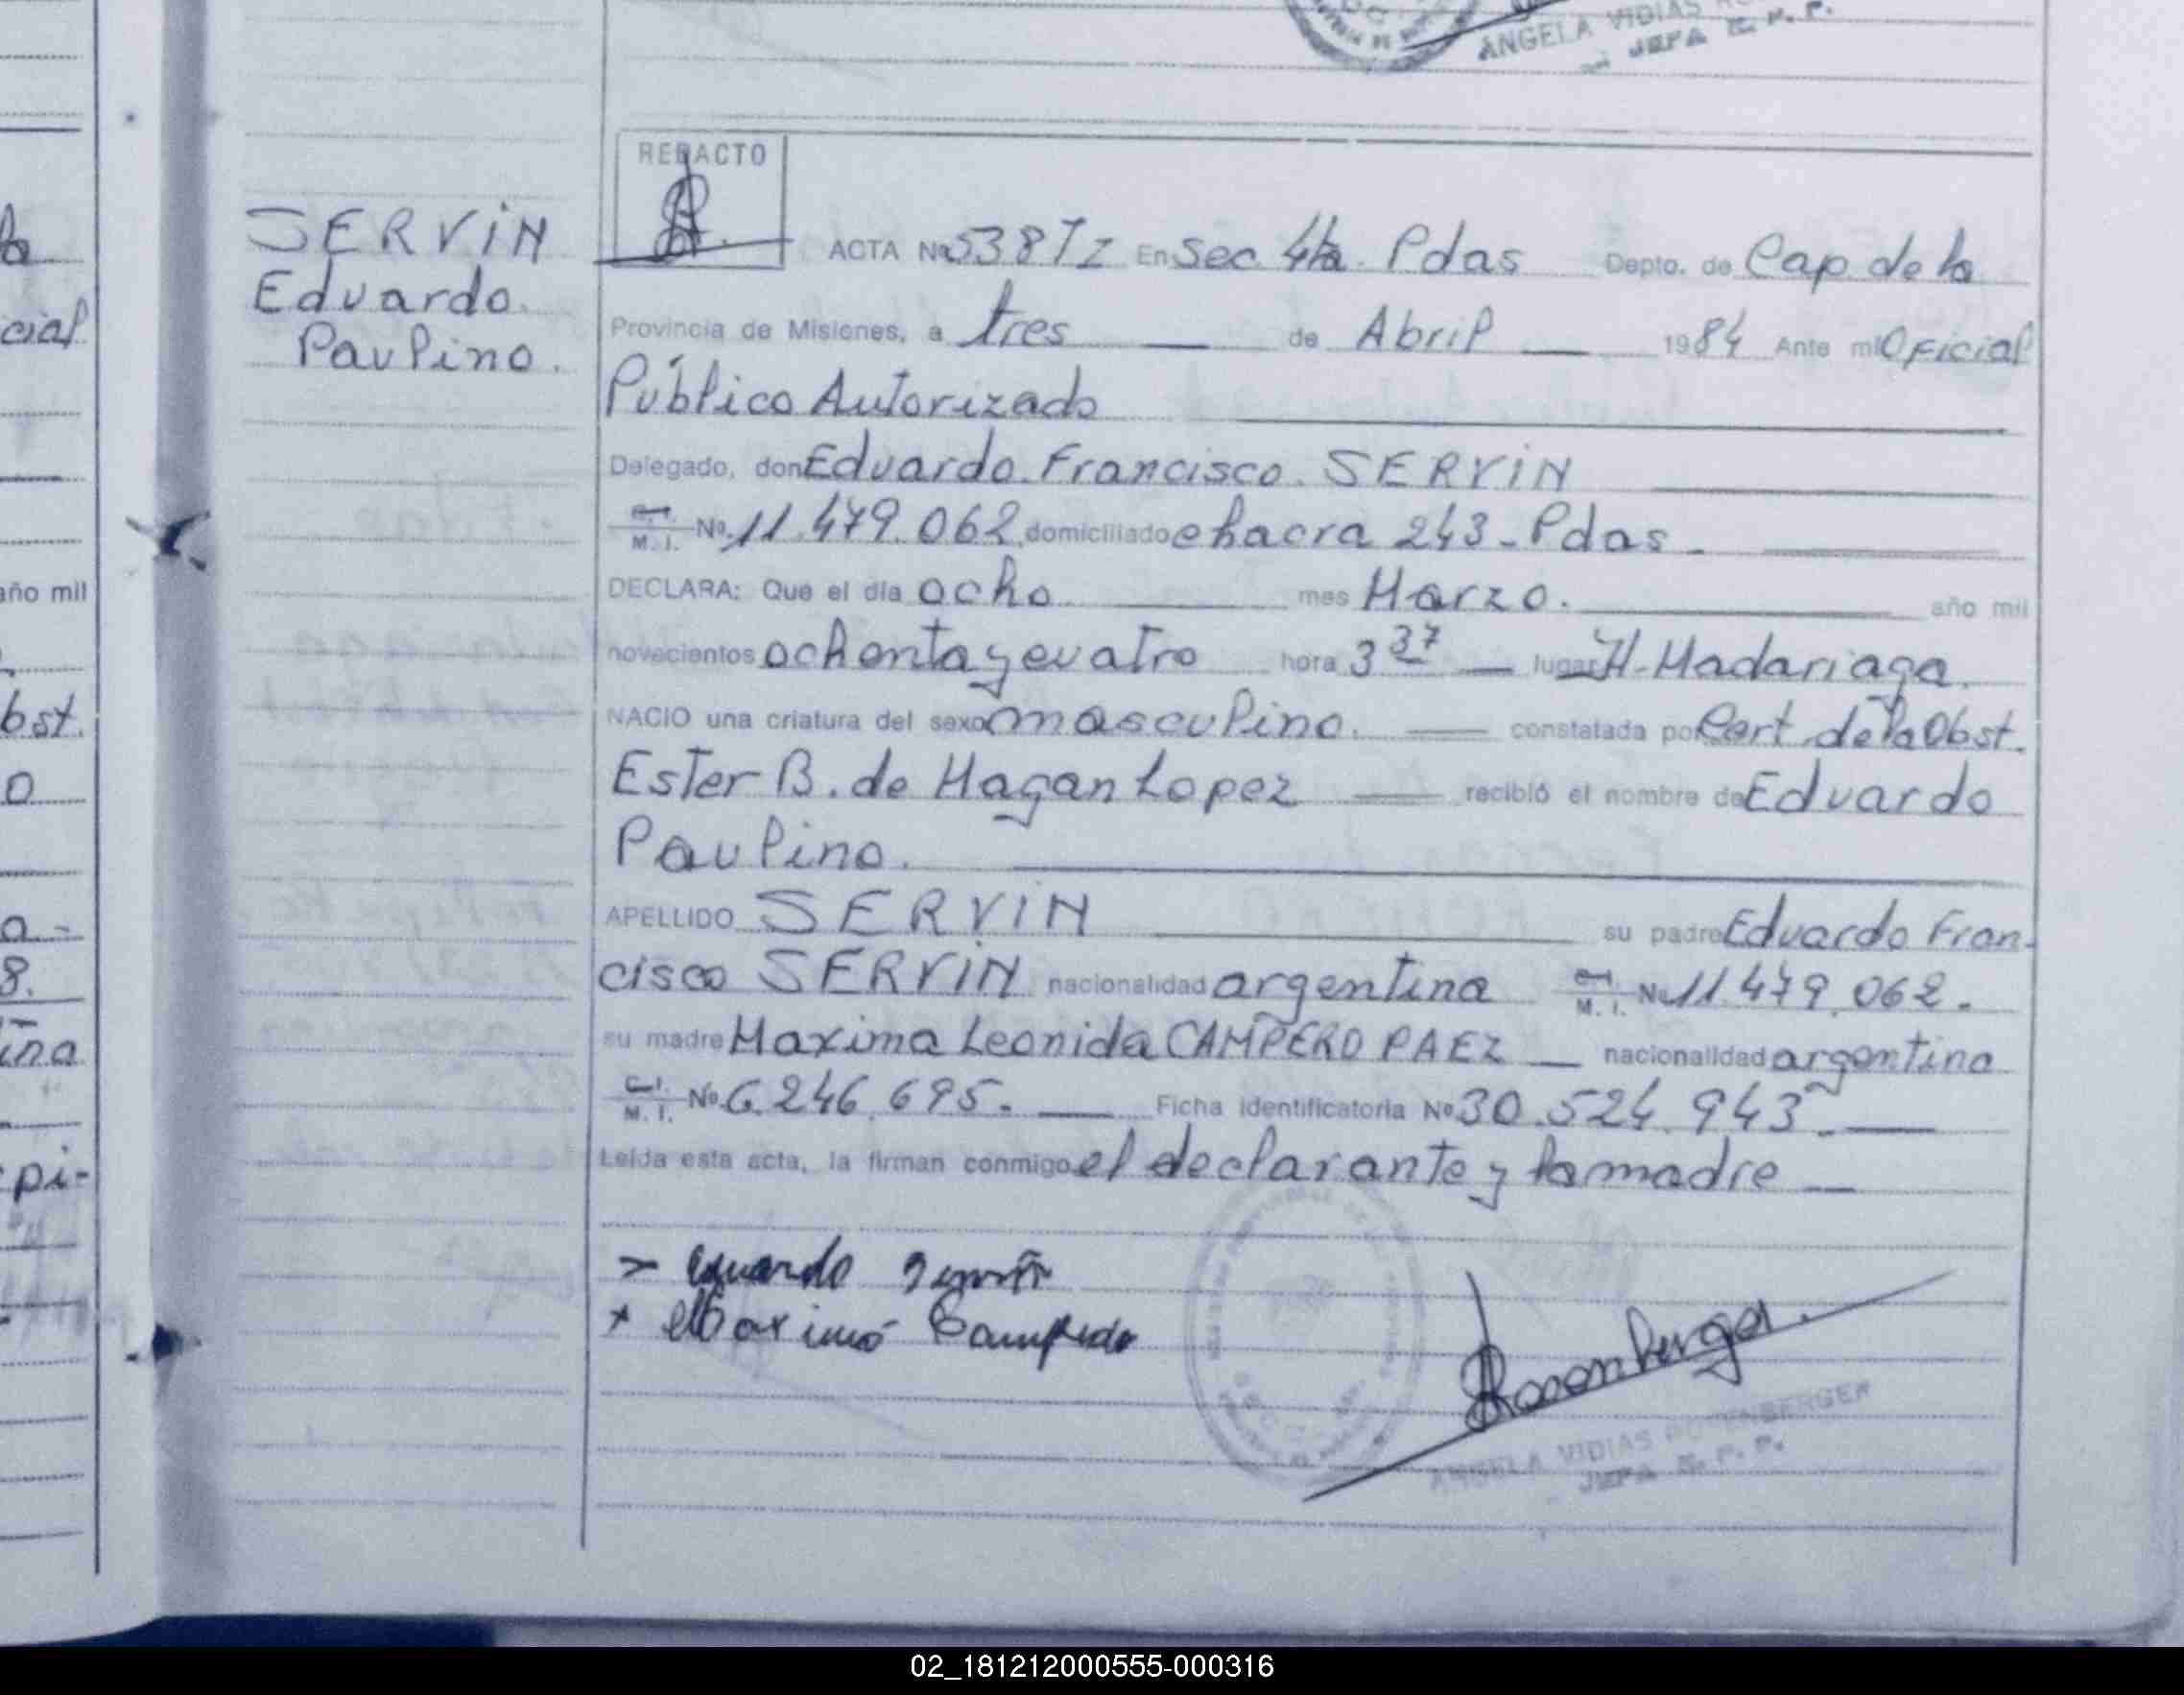 ANGELA VIDIAS
JEFA R. P. P.
REDACTO
SERVIN
Eduardo
Paulino.
ACTA Nº 538 TI En Sec 4ta. Pdas Depto. de Cap. de la
Provincia de Misiones, a tres de Abril 1984 Ante mi Oficial
Público Autorizado
Delegado, don Eduardo Francisco SERVIN
C.I. M.I. Nº 11.479.062 domiciliado chacra 243 - Pdas -
DECLARA: Que el día ocho mes Marzo. año mil
novecientos ochenta y cuatro hora 3 37 lugar H. Madariaga.
NACIO una criatura del sexo masculino. constatada por Cert. de la Obst.
Ester B. de Hagan Lopez recibió el nombre de Eduardo
Paulino.
APELLIDO SERVIN su padre Eduardo Fran-
cisco SERVIN nacionalidad argentina C.I. M.I. Nº 11.479.062.
su madre Maxima Leonida CAMPERO PAEZ nacionalidad argentina
C.I. M.I. Nº 6.246.695. Ficha identificatoria Nº 30.524.943.
Leída esta acta, la firman conmigo el declarante y la madre
ANGELA VIDIAS ROSENBERGER
JEFA R. P. P.
la
cial
año mil
bst.
o
a -
8.
ina
pi-
02_181212000555-000316